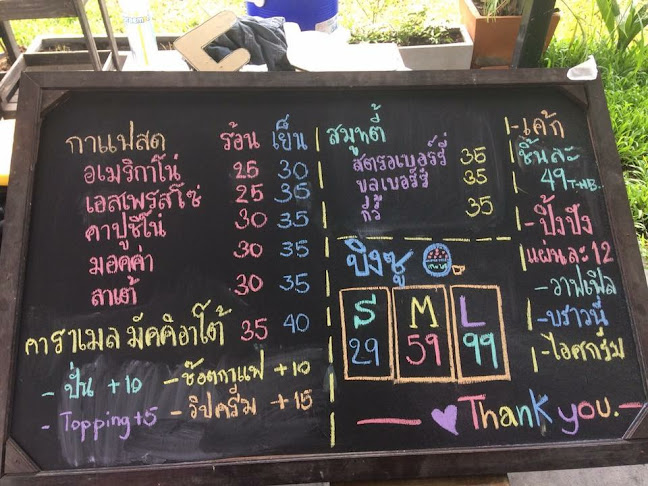 กาแฟสด ร้อน เย็น
อเมริกาโน่ 25 30
เอสเพรสโซ่ 25 35
คาปูชิโน่ 30 35
มอคค่า 30 35
ลาเต้ 30 35
คาราเมล มัคคิอาโต้ 35 40
- ปั่น +10 - ช๊อตกาแฟ +10
- Topping +5 - วิปครีม +15
สมูทตี้
สตรอเบอร์รี่ 35
บลูเบอร์รี่ 35
กีวี่ 35
บิงซู
S M L
29 59 99
- เค้ก
ชิ้นละ
49 THB.
- ปิ้งปัง
แผ่นละ 12
- วาฟเฟิล
- บราวนี่
- ไอศกรีม
Thank you.-